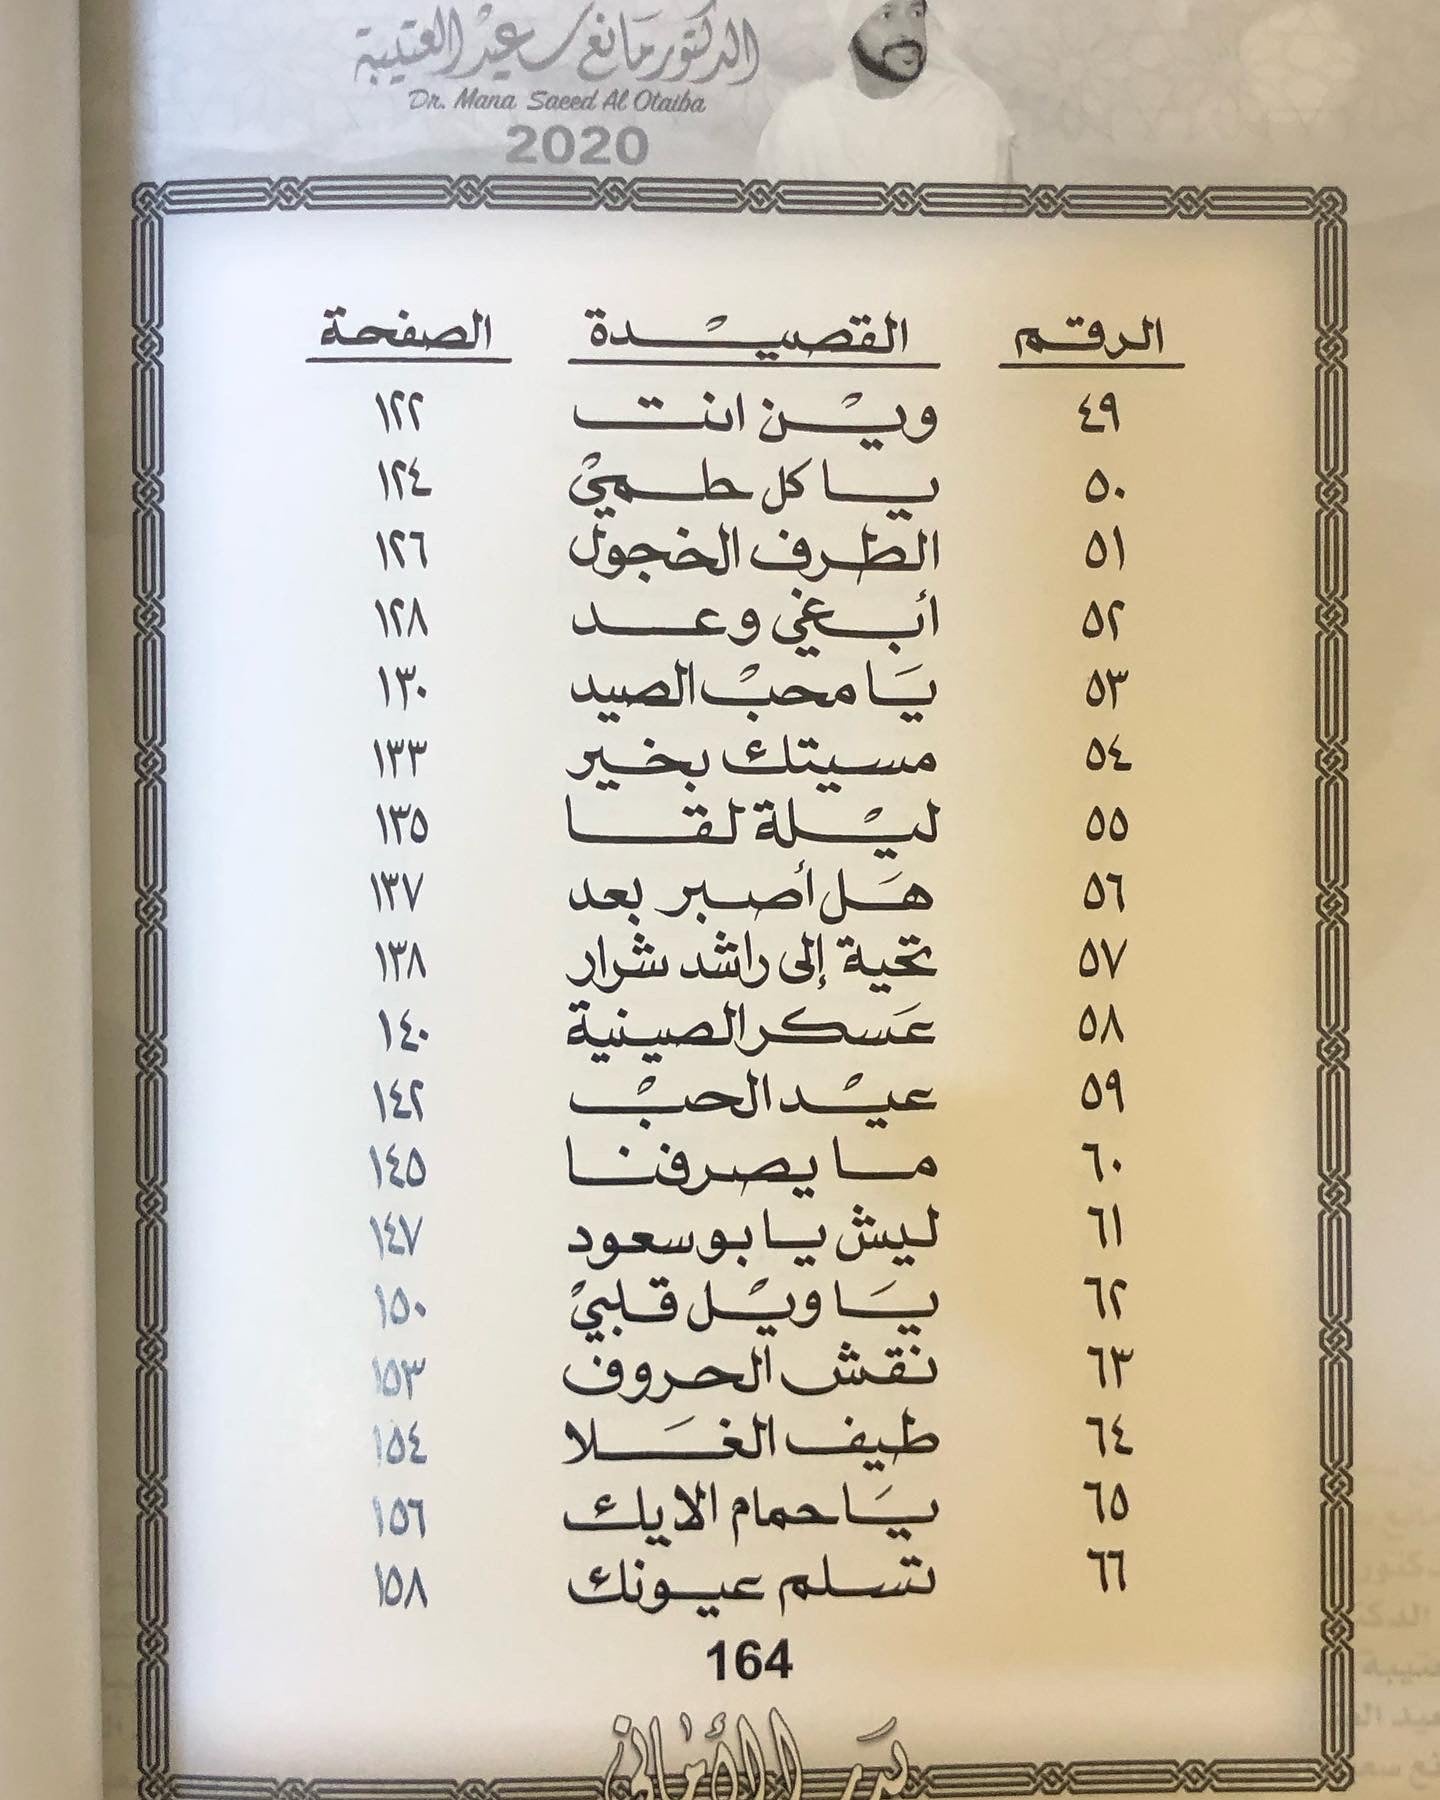 الدكتور مانع سعيد العتيبة
Dr. Mana Saeed Al Otaiba
2020
الرقم القصيدة الصفحة
٤٩ وين انت ١٢٢
٥٠ يا كل حلمي ١٢٤
٥١ الطرف الخجول ١٢٦
٥٢ أبغي وعد ١٢٨
٥٣ يا محب الصيد ١٣٠
٥٤ مسيتك بخير ١٣٣
٥٥ ليلة لقا ١٣٥
٥٦ هل أصبر بعد ١٣٧
٥٧ تحية إلى راشد شرار ١٣٨
٥٨ عسكر الصينية ١٤٠
٥٩ عيد الحب ١٤٢
٦٠ ما يصرفنا ١٤٥
٦١ ليش يا بوسعود ١٤٧
٦٢ يا ويل قلبي ١٥٠
٦٣ نقش الحروف ١٥٣
٦٤ طيف الغلا ١٥٤
٦٥ يا حمام الايك ١٥٦
٦٦ تسلم عيونك ١٥٨
164
بدر الأماني